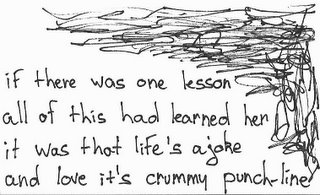 if there was one lesson
all of this had learned her
it was that life's a joke
and love it's crummy punch-line